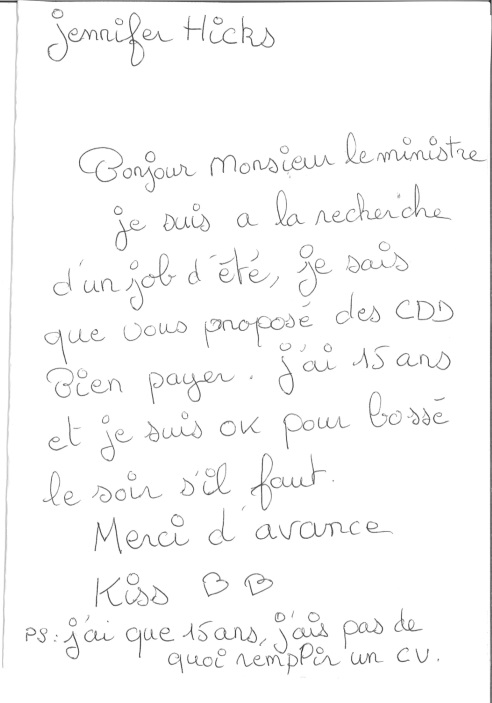 jennifer Hicks
Bonjour Monsieur le ministre
je suis a la recherche
d'un job d'été, je sais
que vous proposé des CDD
Bien payer. j'ai 15 ans
et je suis ok pour bossé
le soir s'il faut.
Merci d'avance
Kiss
PS: j'ai que 15 ans, j'ais pas de
quoi remplir un CV.